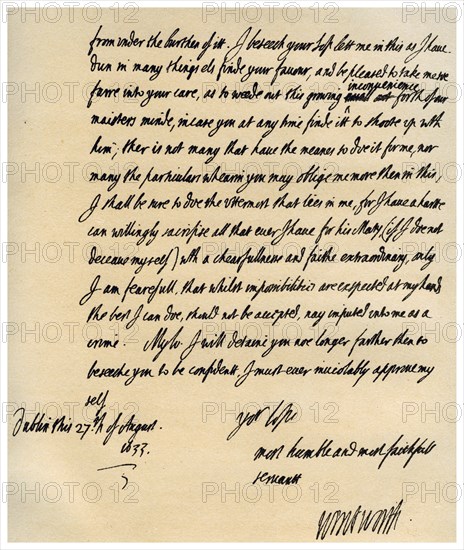 from under the burthen of itt. I beseech your Lopp lett me in this as I have
dun in many things els finde your favour, and be pleased to take me soe
farre into your care, as to weede out this growing inconvenience forth of our
maisters minde, in case you at any time finde itt to shoote up with
him; ther is not many that have the means to doe it for me, nor
many the particulars wherin you may oblige me more then in this,
I shall be sure to doe the uttermost that lies in me, for I have a harte
can willingly sacrifise all that ever I have for his Maty (if I doe not
deceave myself) with a chearfullness and faithe extraordinary, only
I am fearefull, that whilst impossibilities are expected at my hand
the best I can doe, should not be accepted, nay imputed unto me as a
crime. My lo. I will detaine you noe longer farther then to
beseeche you to be confident, I must ever inviolably approve my
self
Dublin this 27.th of August.
1633.
yor Lopps
most humble and most faithfull
servant
Wentworth.
PHOTO 12